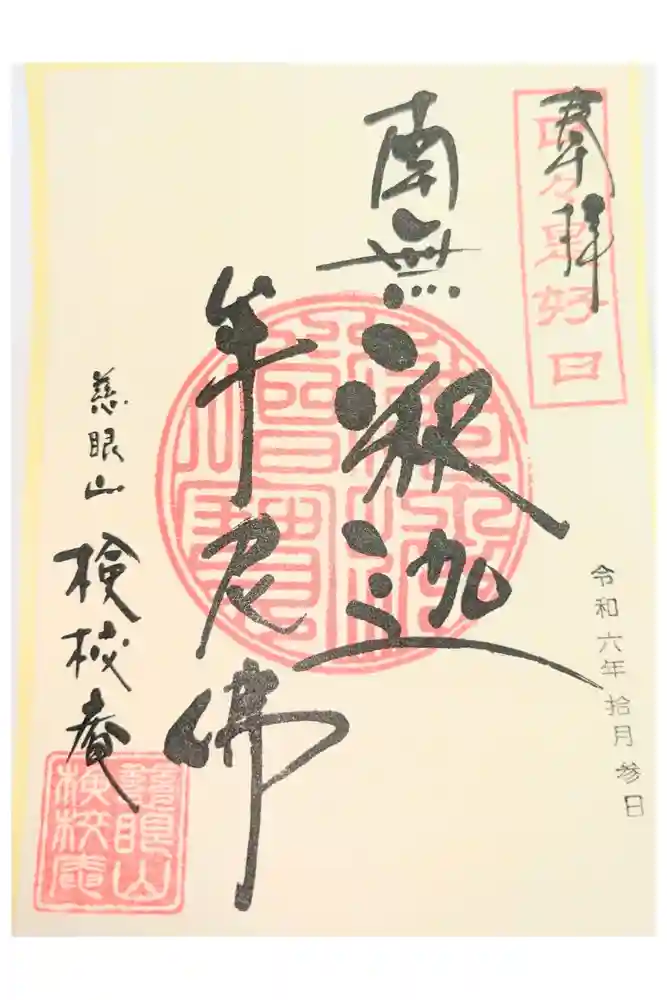 奉拝
日々是好日
令和六年拾月参日
南無釈迦
牟尼佛
慈眼山 検校庵
慈眼山
検校庵